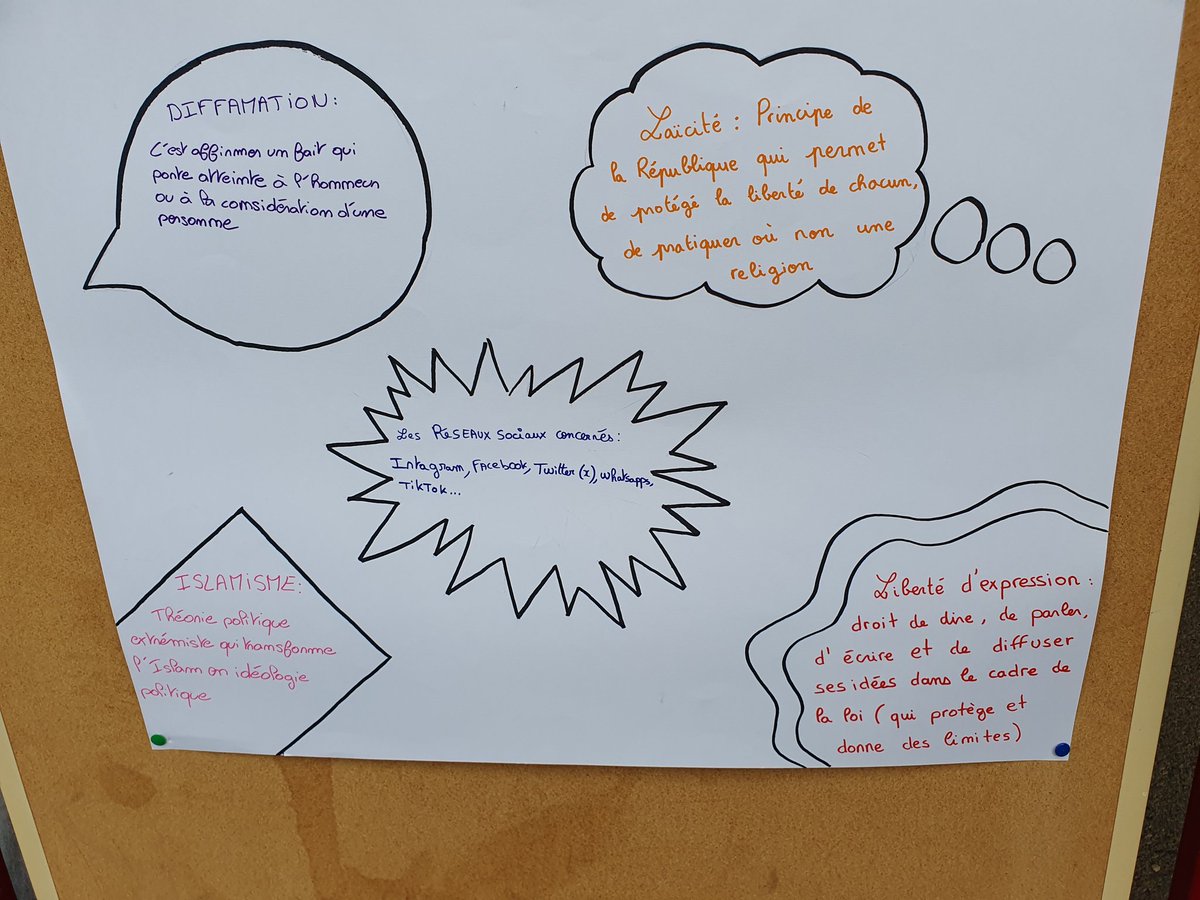 DIFFAMATION:
C'est affirmer un fait qui
porte atteinte à l'honneur
ou à la considération d'une
personne
Laïcité : Principe de
la République qui permet
de protégé la liberté de chacun,
de pratiquer où non une
religion
Les RÉSEAUX sociaux concernés:
Intagram, Facebook, Twitter (x), Whatsapps,
TikTok...
ISLAMISME:
Théorie politique
extrémiste qui transforme
l'Islam en idéologie
politique
Liberté d'expression :
droit de dire, de parler,
d'écrire et de diffuser
ses idées dans le cadre de
la loi (qui protège et
donne des limites)